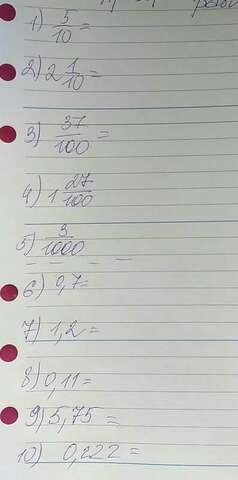 1) 5/10 =
2) 2 1/10 =
3) 37/100 =
4) 1 27/100
5) 3/1000
6) 0,7=
7) 1,2=
8) 0,11=
9) 5,75 =
10) 0,222=